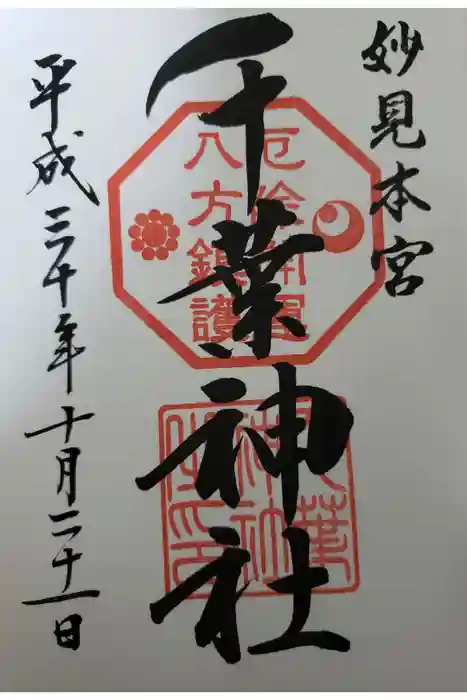 妙見本宮
千葉神社
厄除開運
八方鎮護
千葉
神社
之印
平成三十年十月二十一日